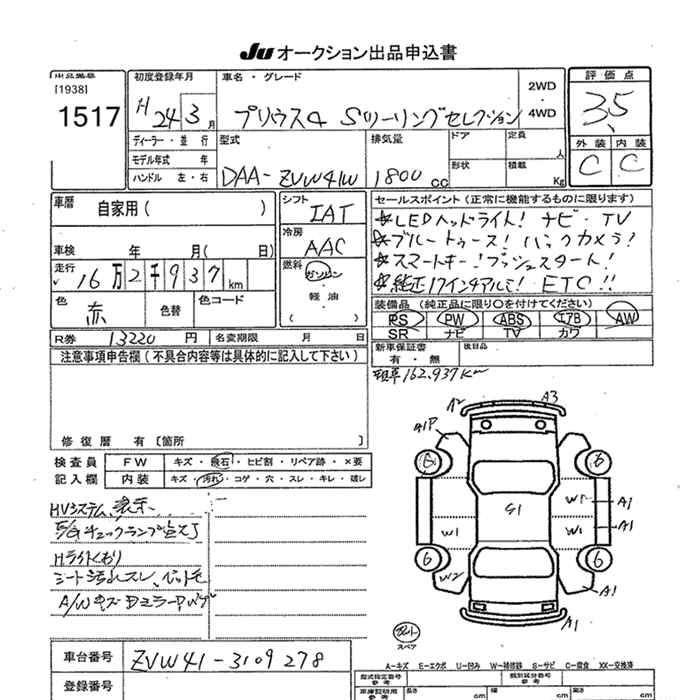 JU オークション出品申込書
出品番号 初度登録年月 車名・グレード 2WD・4WD 評価点
[1938]
1517 H 24 3月 プリウスα Sツーリングセレクション 3.5
ディーラー・並行 型式 排気量 ドア 定員 人 外装 内装
モデル年式 年 形状 積載 Kg C C
ハンドル 左・右 DAA-ZVW41W 1800 cc
車暦 自家用( ) シフト IAT セールスポイント(正常に機能するものに限ります)
☆LEDヘッドライト! ナビ・TV
冷房 AAC ☆ブルートゥース! バックカメラ!
車検 年 月( 日) ☆スマートキー!プッシュスタート!
走行 16万2千937km 燃料 ガソリン・軽油・( ) ☆純正17インチアルミ! ETC!!
色 赤 色替 色コード 装備品(純正品に限り○を付けてください)
PS PW ABS エアB AW
R券 13220円 名変期限 月 日 SR ナビ TV カワ
注意事項申告欄(不具合内容等は具体的に記入して下さい) 新車保証書 有・無 後日品
預車 162,937Km
修復歴 有〔箇所
検査員 FW キズ・飛石・ヒビ割・リペア跡・×要
記入欄 内装 キズ・汚れ・コゲ・穴・スレ・キレ・破レ
HVシステム表示
E/Gチェックランプ点灯
Hライトくもり
シート汚れスレ、
A/WキズDミラー
A2 A3
G1P
6 6
G1 W1 A1
W1 W1 A1
6 6
W2 A1
A1
スペア
A-キズ E-エクボ U-凹み W-補修跡 S-サビ C-腐食 XX-交換済
車台番号 ZVW41-3109278
登録番号
型式指定番号 参考 類別区分番号 参考
車庫証明用 参考 長さ cm 幅 cm 高さ cm